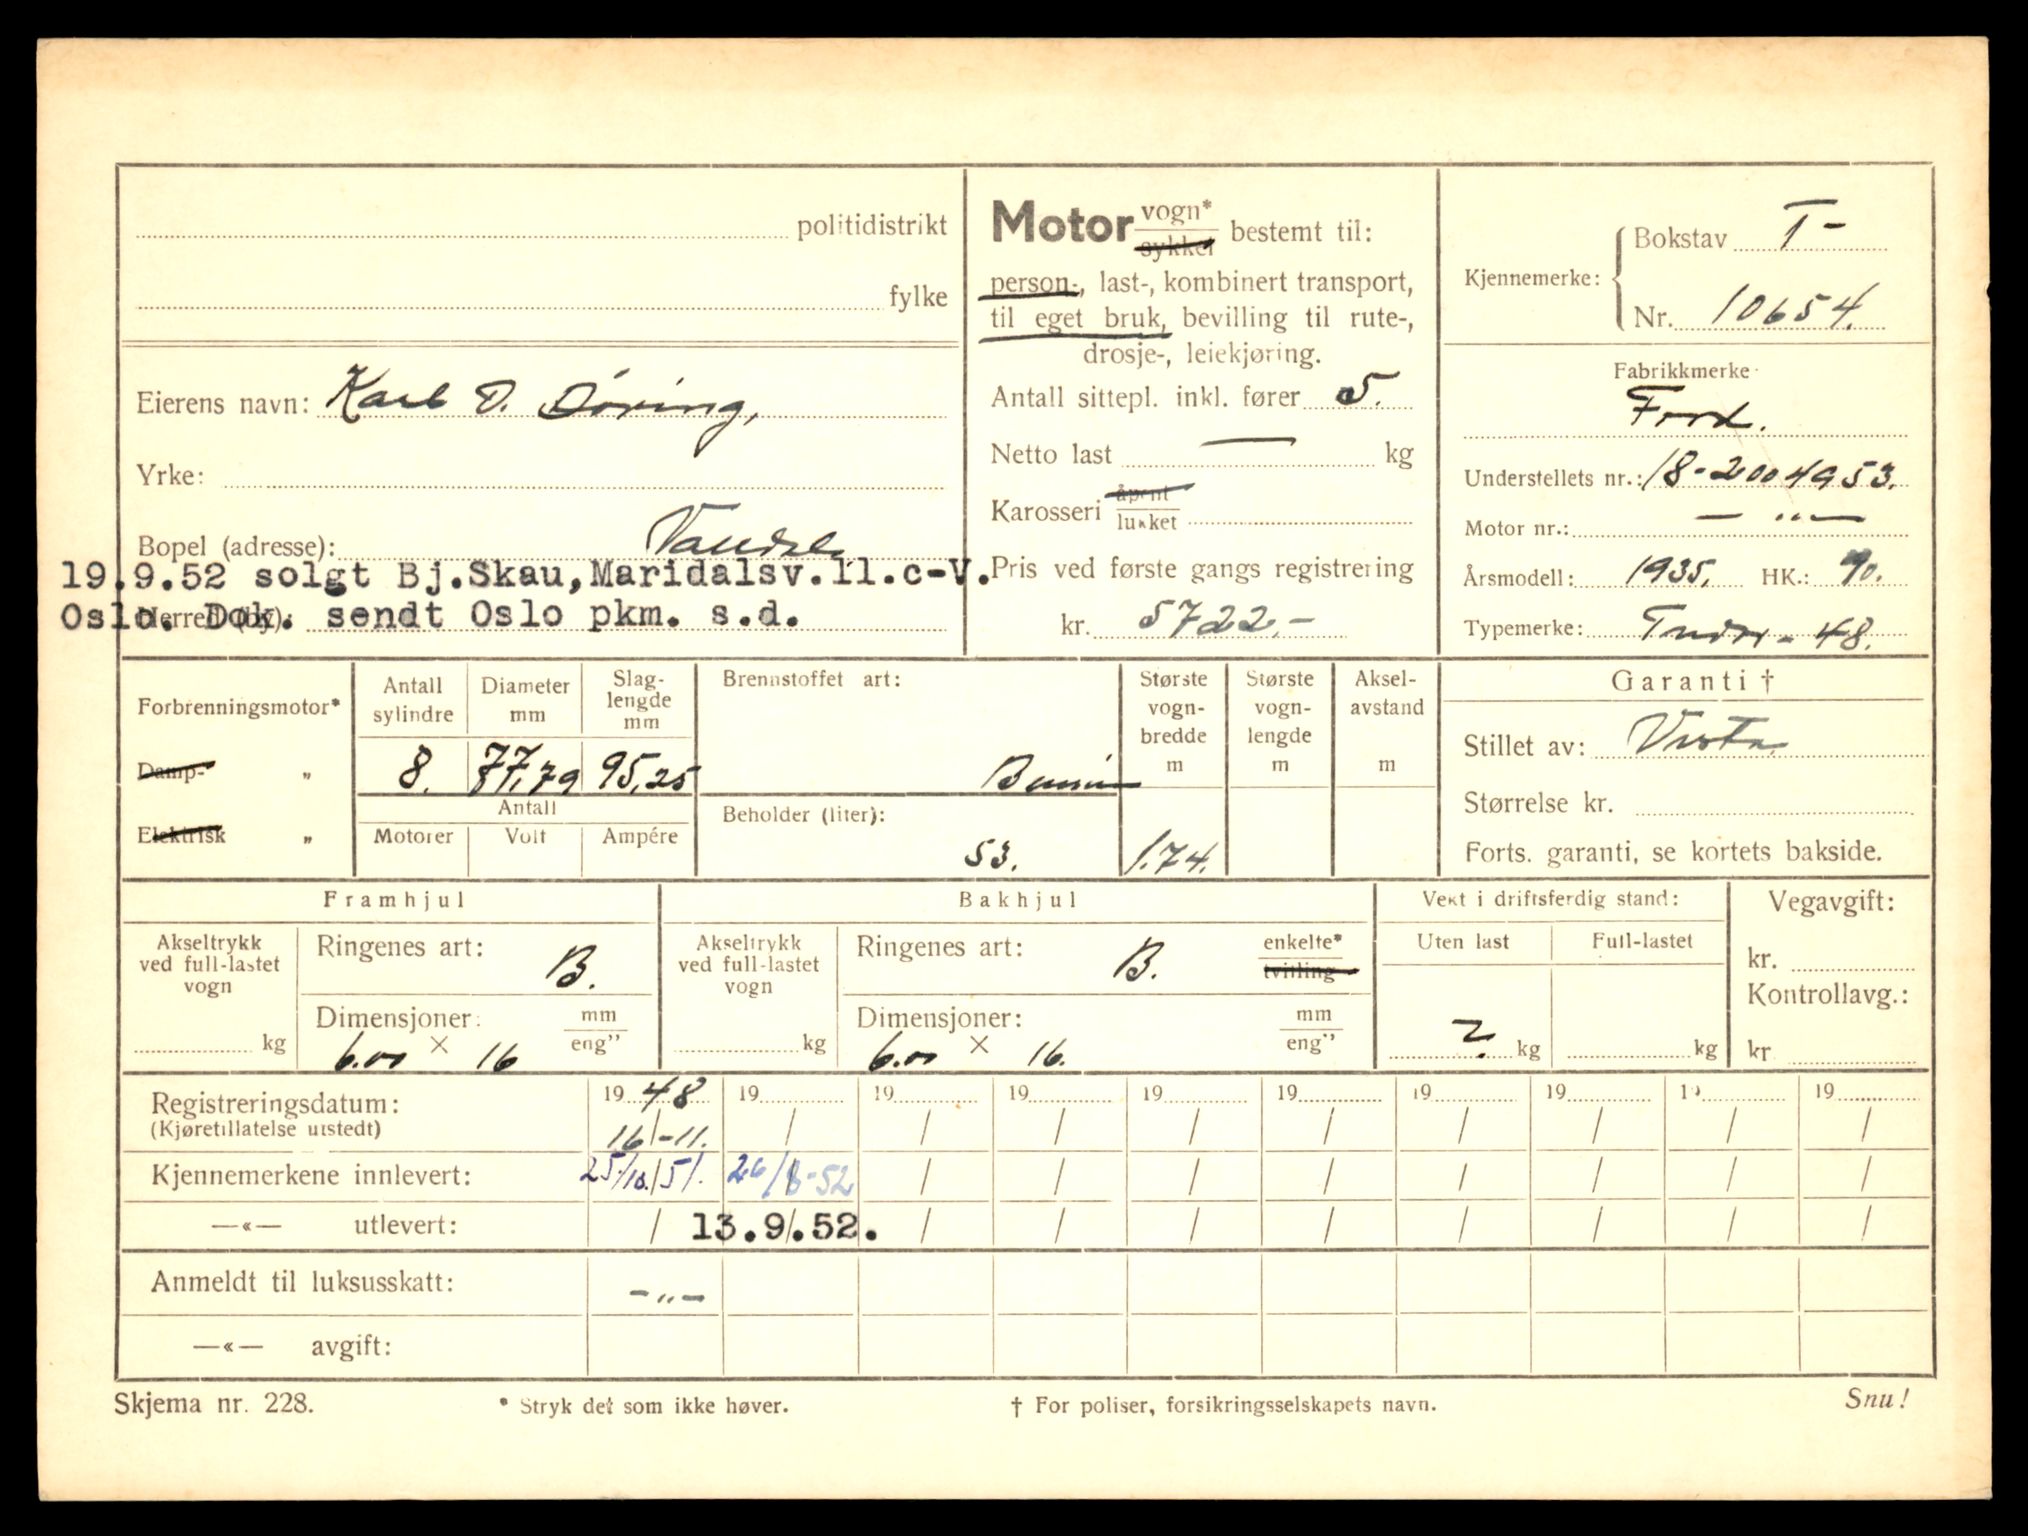 politidistrikt
fylke
Eierens navn: Karl O. Döring,
Yrke:
Bopel (adresse):
19.9.52 solgt Bj.Skau,Maridalsv.11.c-V.
Oslo. Dok. sendt Oslo pkm. s.d.
Herred (by):
Motor vogn* sykkel bestemt til:
person-, last-, kombinert transport,
til eget bruk, bevilling til rute-,
drosje-, leiekjøring.
Antall sittepl. inkl. fører 5.
Netto last — kg
Karosseri åpent lukket
Pris ved første gangs registrering
kr. 5722.-
Kjennemerke: Bokstav T-
Nr. 10654.
Fabrikkmerke
Ford.
Understellets nr.: 18-2004953.
Motor nr.: — " —
Årsmodell: 1935. HK.: 90.
Typemerke: Tudor - 48.
Forbrenningsmotor*
Damp- "
Elektrisk "
Antall sylindre
8.
Diameter mm
77,79
Slag-
lengde
mm
95,25
Antall
Motorer Volt Ampére
Brennstoffet art:
Bensin
Beholder (liter):
53.
Største
vogn-
bredde
m
1.74.
Største
vogn-
lengde
m
Aksel-
avstand
m
Garanti †
Stillet av: Vesta
Størrelse kr.
Forts. garanti, se kortets bakside.
Framhjul
Akseltrykk
ved full-lastet
vogn
kg
Ringenes art: B.
Dimensjoner: mm eng"
6.00 × 16
Bakhjul
Akseltrykk
ved full-lastet
vogn
kg
Ringenes art: B. enkelte* tvilling
Dimensjoner: mm eng"
6.00 × 16.
Vekt i driftsferdig stand:
Uten last Full-lastet
?. kg kg
Vegavgift:
kr.
Kontrollavg.:
kr
Registreringsdatum: 19 48 19 19 19 19 19 19 19 19 19
(Kjøretillatelse utstedt) 16/-11. / / / / / / / / /
Kjennemerkene innlevert: 25/10.51. 26/8-52 / / / / / / / /
—«— utlevert: / 13.9.52. / / / / / / / /
Anmeldt til luksusskatt: — " —
—«— avgift:
Skjema nr. 228. * Stryk det som ikke høver. † For poliser, forsikringsselskapets navn. Snu!